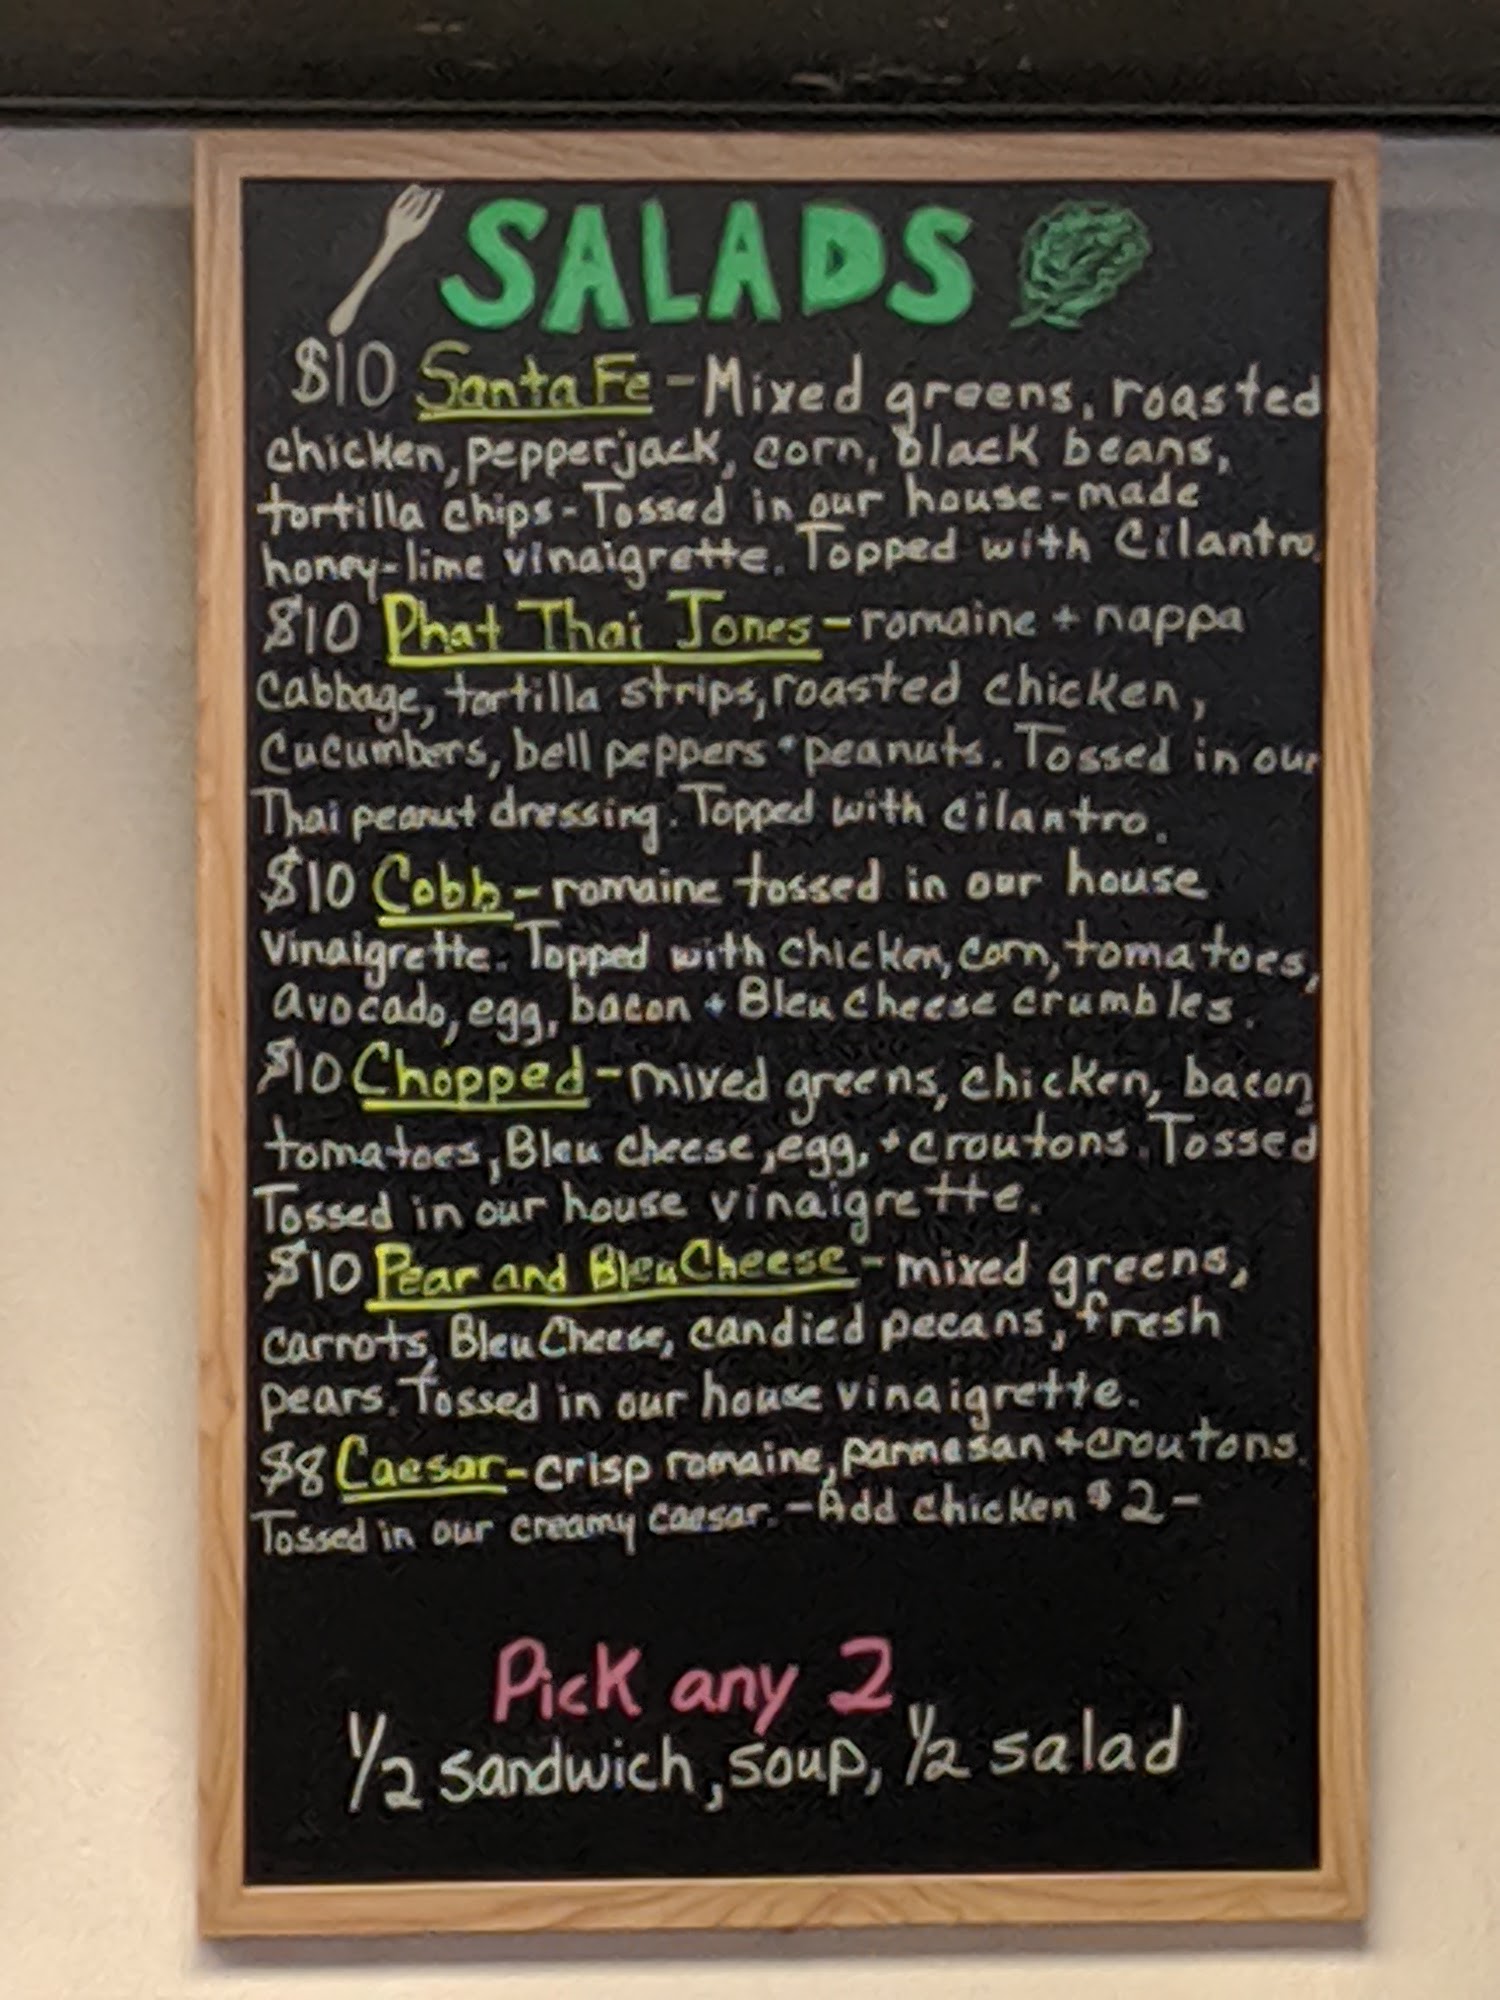 SALADS
$10 Santa Fe - Mixed greens, roasted
chicken, pepperjack, corn, black beans,
tortilla chips - Tossed in our house-made
honey-lime vinaigrette. Topped with Cilantro.
$10 Phat Thai Jones - romaine + nappa
cabbage, tortilla strips, roasted chicken,
cucumbers, bell peppers + peanuts. Tossed in our
Thai peanut dressing. Topped with cilantro.
$10 Cobb - romaine tossed in our house
vinaigrette. Topped with chicken, corn, tomatoes,
avocado, egg, bacon + Bleu cheese crumbles.
$10 Chopped - mixed greens, chicken, bacon,
tomatoes, Bleu cheese, egg, + croutons. Tossed
Tossed in our house vinaigrette.
$10 Pear and Bleu Cheese - mixed greens,
carrots, Bleu Cheese, candied pecans, fresh
pears. Tossed in our house vinaigrette.
$8 Caesar - crisp romaine, parmesan + croutons.
Tossed in our creamy caesar. - Add chicken $2 -
Pick any 2
1/2 sandwich, soup, 1/2 salad